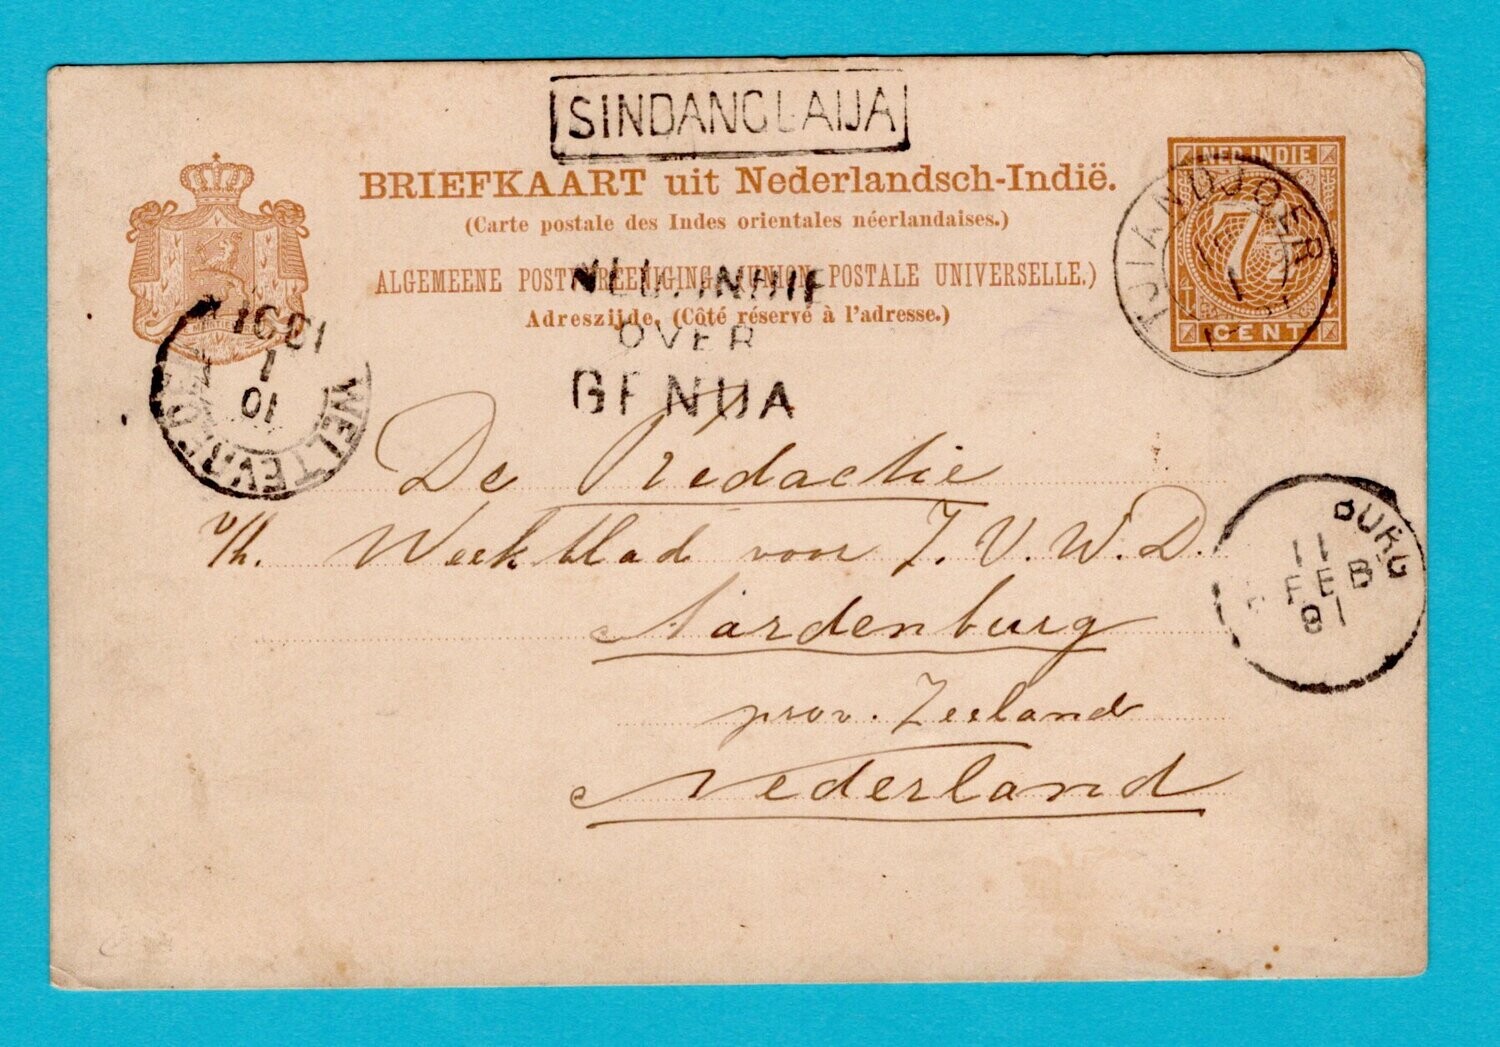 SINDANGLAIJA
NED. INDIE
BRIEFKAART uit Nederlandsch-Indië.
(Carte postale des Indes orientales néerlandaises.)
ALGEMEENE POSTVEREENIGING (UNION POSTALE UNIVERSELLE.)
Adreszijde. (Côté réservé à l'adresse.)
7½
CENT
TJIANDJOER
1
NED. INDIE
OVER
GENUA
WELTEVREDEN
10
1
1891
De Redactie
v/h. Weekblad voor I. V. W. D.
Aardenburg
prov. Zeeland
Nederland
BURG
11
FEB
91